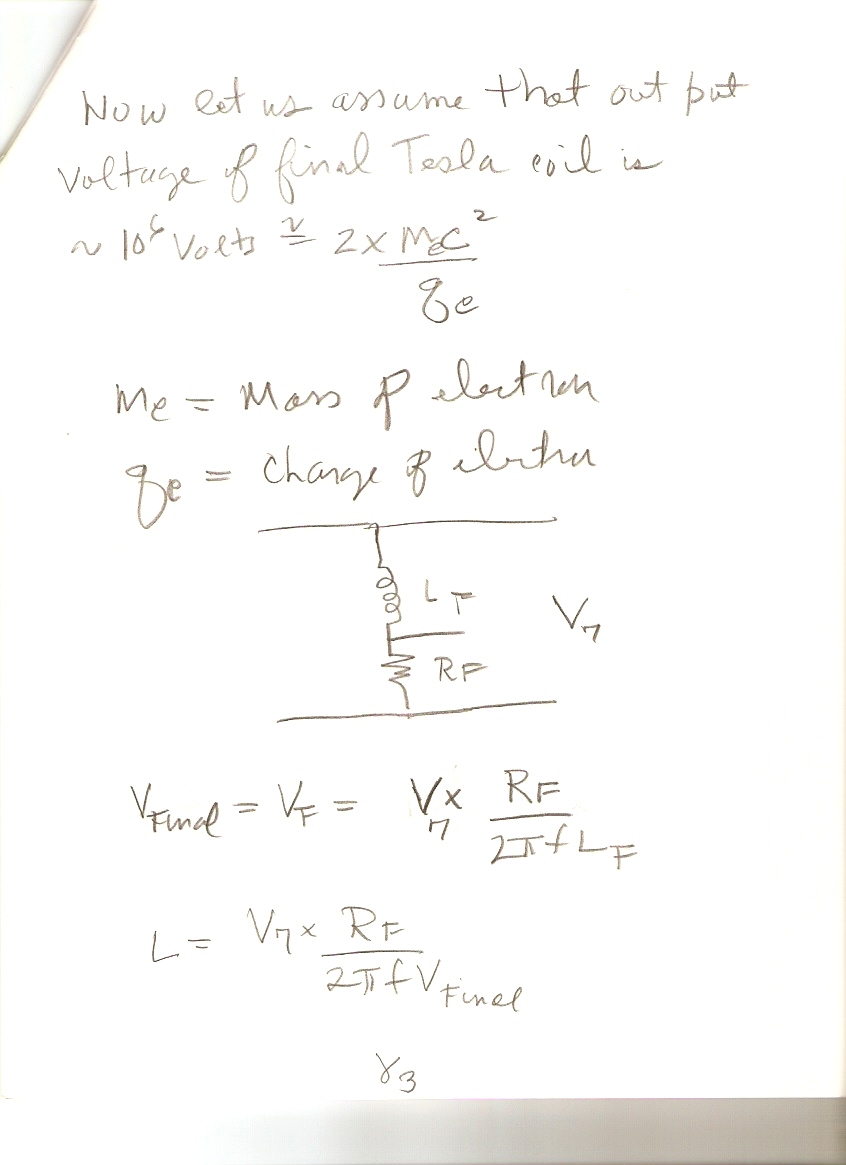 Now let us assume that out put
voltage of final Tesla coil is
~ 10⁶ Volts ≅ 2 x MeC²
qe
me = Mass of electron
qe = Charge of electron
L F
V7
RF
VFinal = VF = V7 x RF
2πfLF
L = V7 x RF
2πfVFinal
γ3